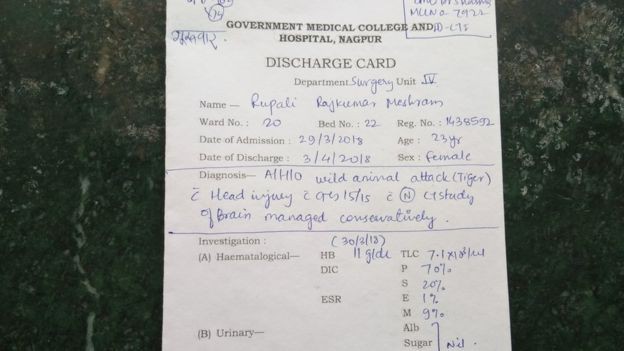 GOVERNMENT MEDICAL COLLEGE AND
HOSPITAL, NAGPUR
DISCHARGE CARD
Department Surgery Unit IV
Name — Rupali Rajkumar Meshram
Ward No. : 20 Bed No. : 22 Reg. No. : 1438592
Date of Admission : 29/3/2018 Age : 23 yr
Date of Discharge : 3/4/2018 Sex : Female
Diagnosis— A/H/O wild animal attack (Tiger)
c̄ Head injury c̄ GCS 15/15 c̄ (N) CT study
of Brain managed conservatively.
Investigation : (30/3/18)
(A) Haematalogical— HB 11 g/dL TLC 7.1×10³/
DIC P 70%
S 20%
ESR E 1%
M 9%
(B) Urinary— Alb
Sugar Nil